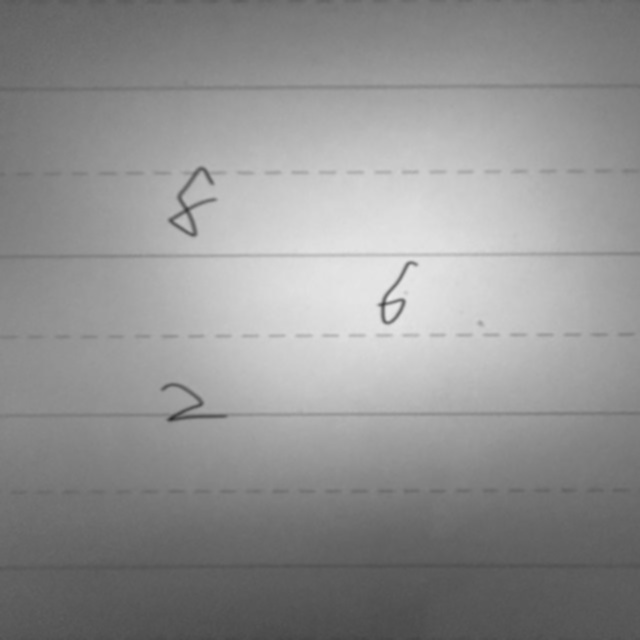 8
6
2